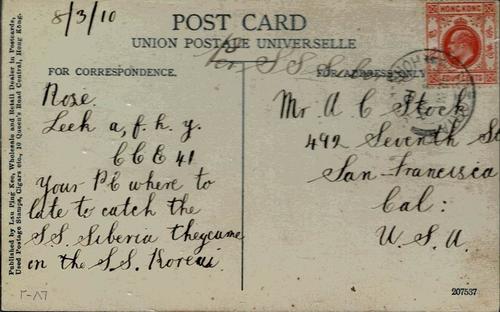 8/3/10
POST CARD
UNION POSTALE UNIVERSELLE
FOR CORRESPONDENCE.
FOR ADDRESS ONLY
HONG KONG
Noxe.
Leeh a, f. h. y.
CCE 41
Your PC where to
late to catch the
S.S. Siberia they came
on the S.S. Korea.
Mr A C Stock
492 Seventh St
San-Francisca
Cal:
U.S.A.
Published by Lau Ping Kee, Wholesale and Retail Dealer in Postcards,
Used Postage Stamps, Cigars etc., 10 Queen's Road Central, Hong Kong.
207537